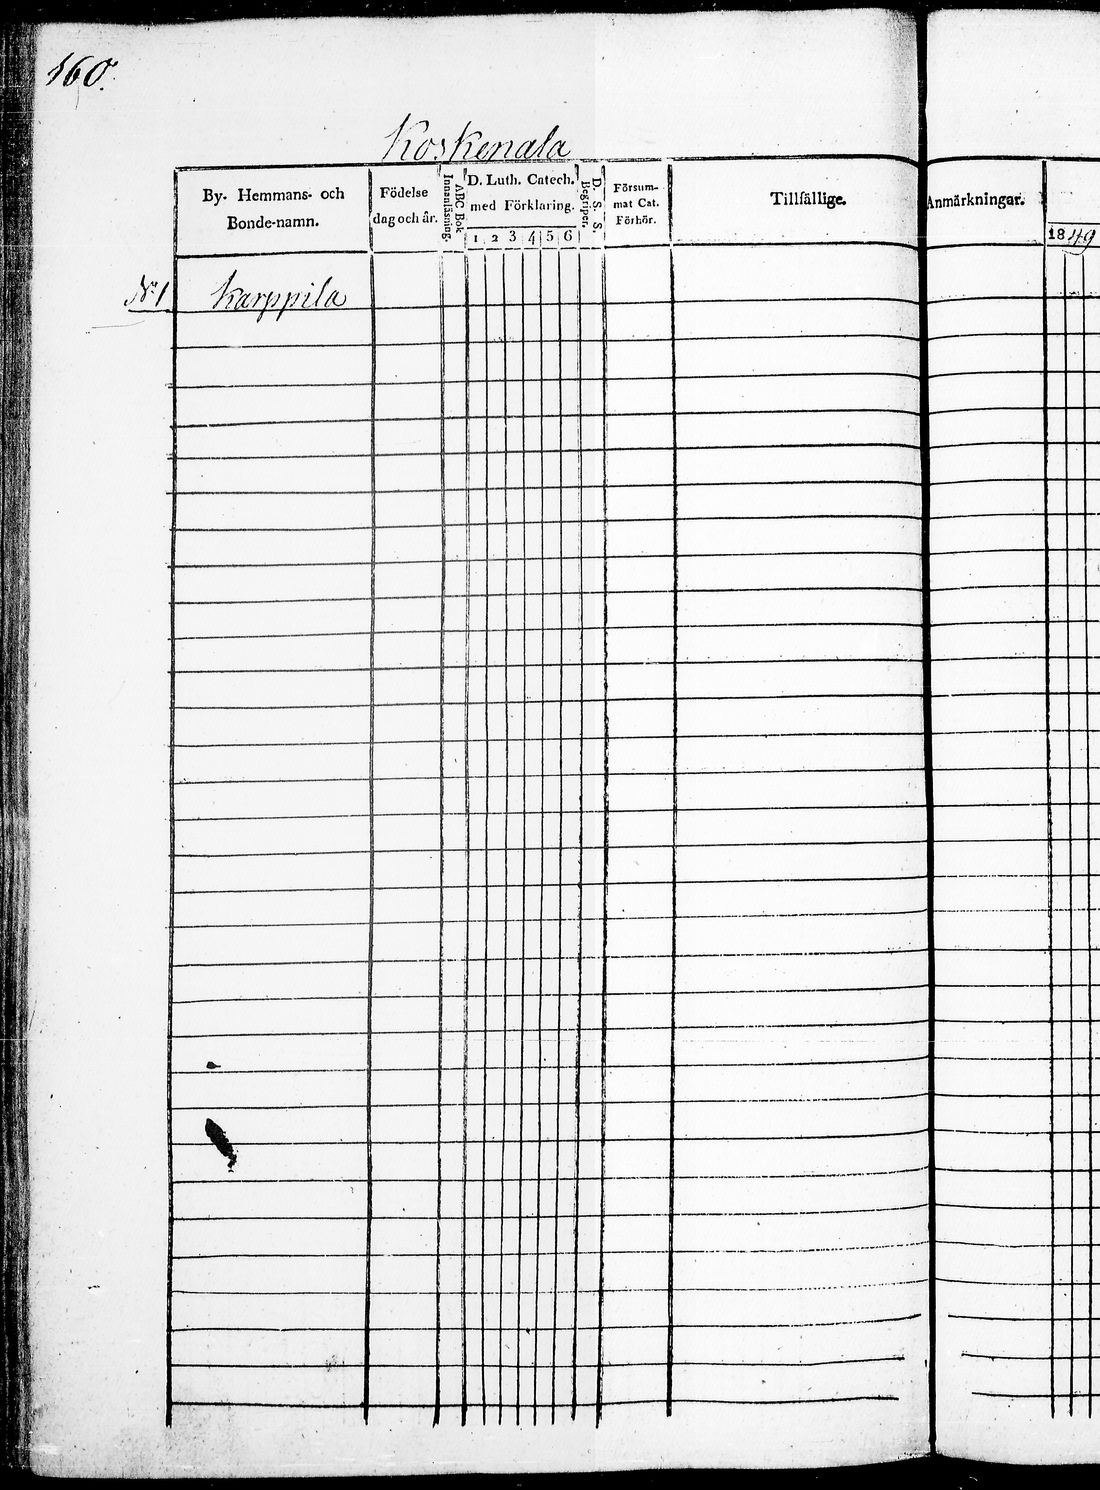 160.
Koskenala
By. Hemmans- och
Bonde-namn.
Födelse
dag och år.
ABC Bok
Innanläsning.
D. Luth. Catech.
med Förklaring.
1 2 3 4 5 6
D. S. S.
Begriper.
Försum-
mat Cat.
Förhör.
Tillfällige.
Anmärkningar.
1849
N:1 Karppila